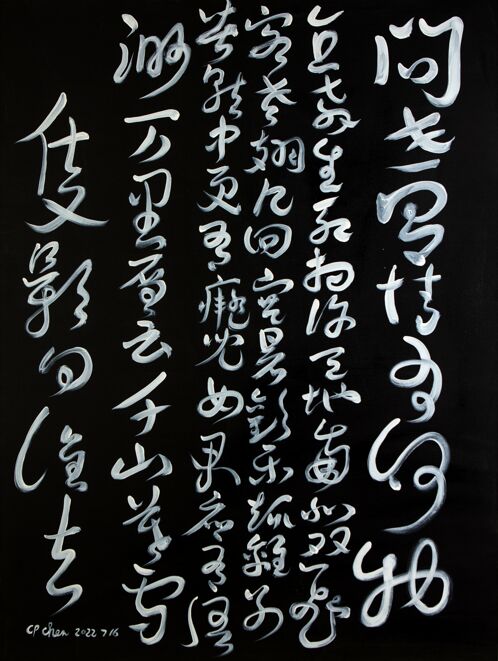 問世間情為何物
直教生死相許天地南北双飛
客老翅几回寒暑歡樂趣離別
苦就中更有癡兒女君應有語
渺万里層云千山暮雪
隻影向誰去
CP Chen 2022 7/6